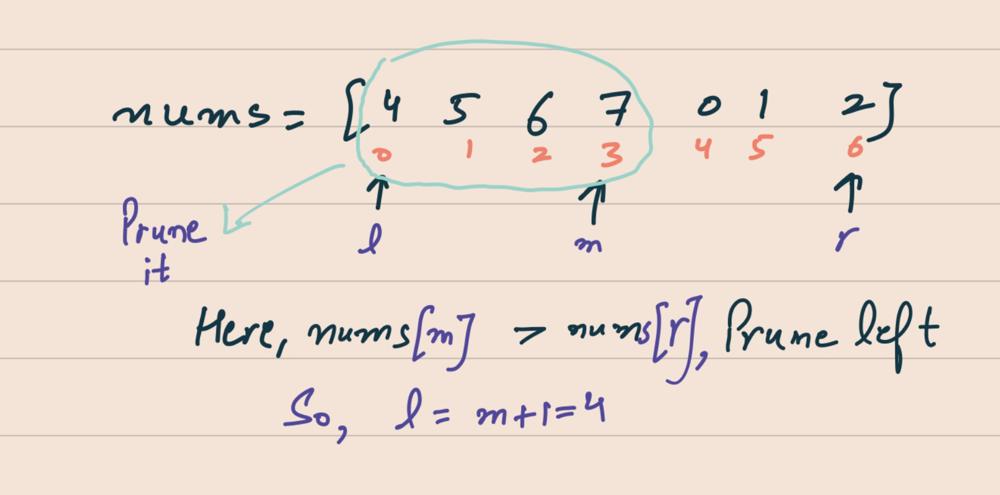 nums = [4 5 6 7 0 1 2]
0 1 2 3 4 5 6
l m r
Prune
it
Here, nums[m] > nums[r], Prune left
So, l = m+1=4